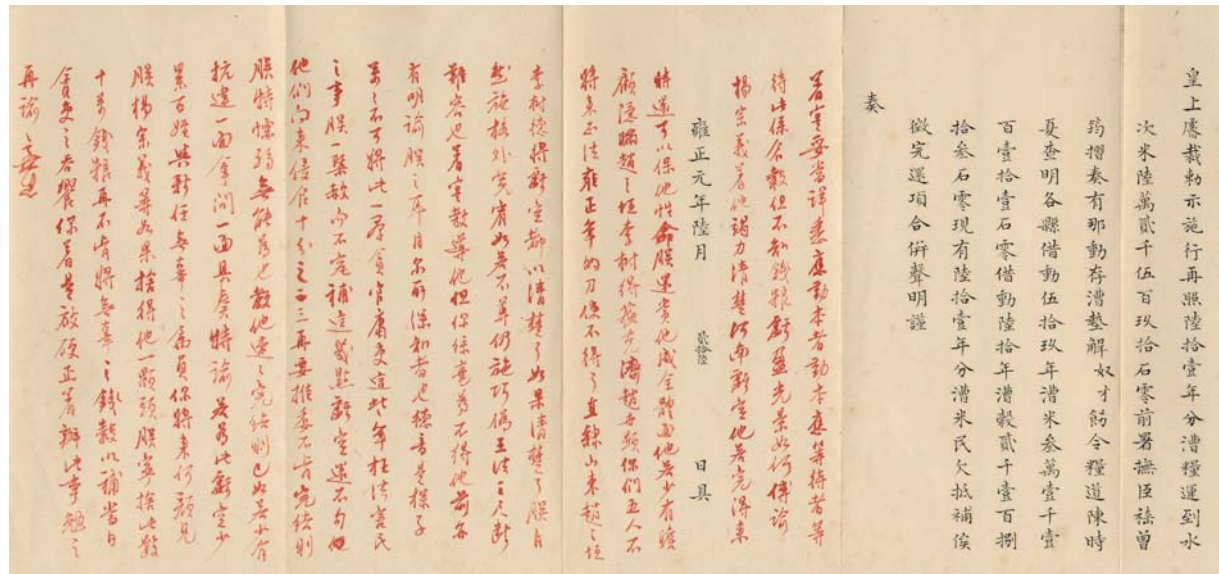 皇上睿裁勅示施行再照陸拾壹年分漕糧運到水
次米陸萬貳千伍百玖拾石零前署撫臣嵇曾
筠摺奏有那動存漕墊解奴才飭令糧道陳時
夏查明各縣借動伍拾玖年漕米叁萬壹千壹
百壹拾壹石零借動陸拾年漕穀貳千壹百捌
拾叁石零現有陸拾壹年分漕米民欠抵補俟
徵完還項合併聲明謹
奏
雍正元年陸月 貳拾陸 日具
著實妥當詳悉應動本者動本應等待者等
待此係名數但不知錢粮虧盈光景如何傳諭
楊宗義著他竭力清楚河南虧空他若完得來
時還可以保他性命朕還賞他成全體面他若少有瞻
顧隱瞞趙之垣李樹得楊宗濟趙世顯你們五人不
將來正法雍正年的刀係不得了直隸山東趙之垣
李樹德將虧空都以清楚了如果清楚了朕自
然施格外寬宥如若不尊仍施巧偽王法之尺斷
難容也著實教導他但你係竟為不得他前亦
有明諭朕之耳目尔所深知者也總言是樣子
萬萬不可將此一群貪官庸吏這些年枉法害民
之事朕一槩赦而不究補這幾點虧空還不勾他
他們向來侵官十分之二三再要推委不肯完結則
朕特懦弱無能為也教他速速完結則已如若少有
抗違一面拿問一面具奏特諭若為此虧空少
累百姓與新任無辜之屬員你將來何顏見
朕楊宗義等如果捨得他一顆頭朕寧捨此數
十萬錢粮再不肯將無辜之錢穀以補當日
貪吏之谷饗你著量放硬正著辦此事勉之
再諭